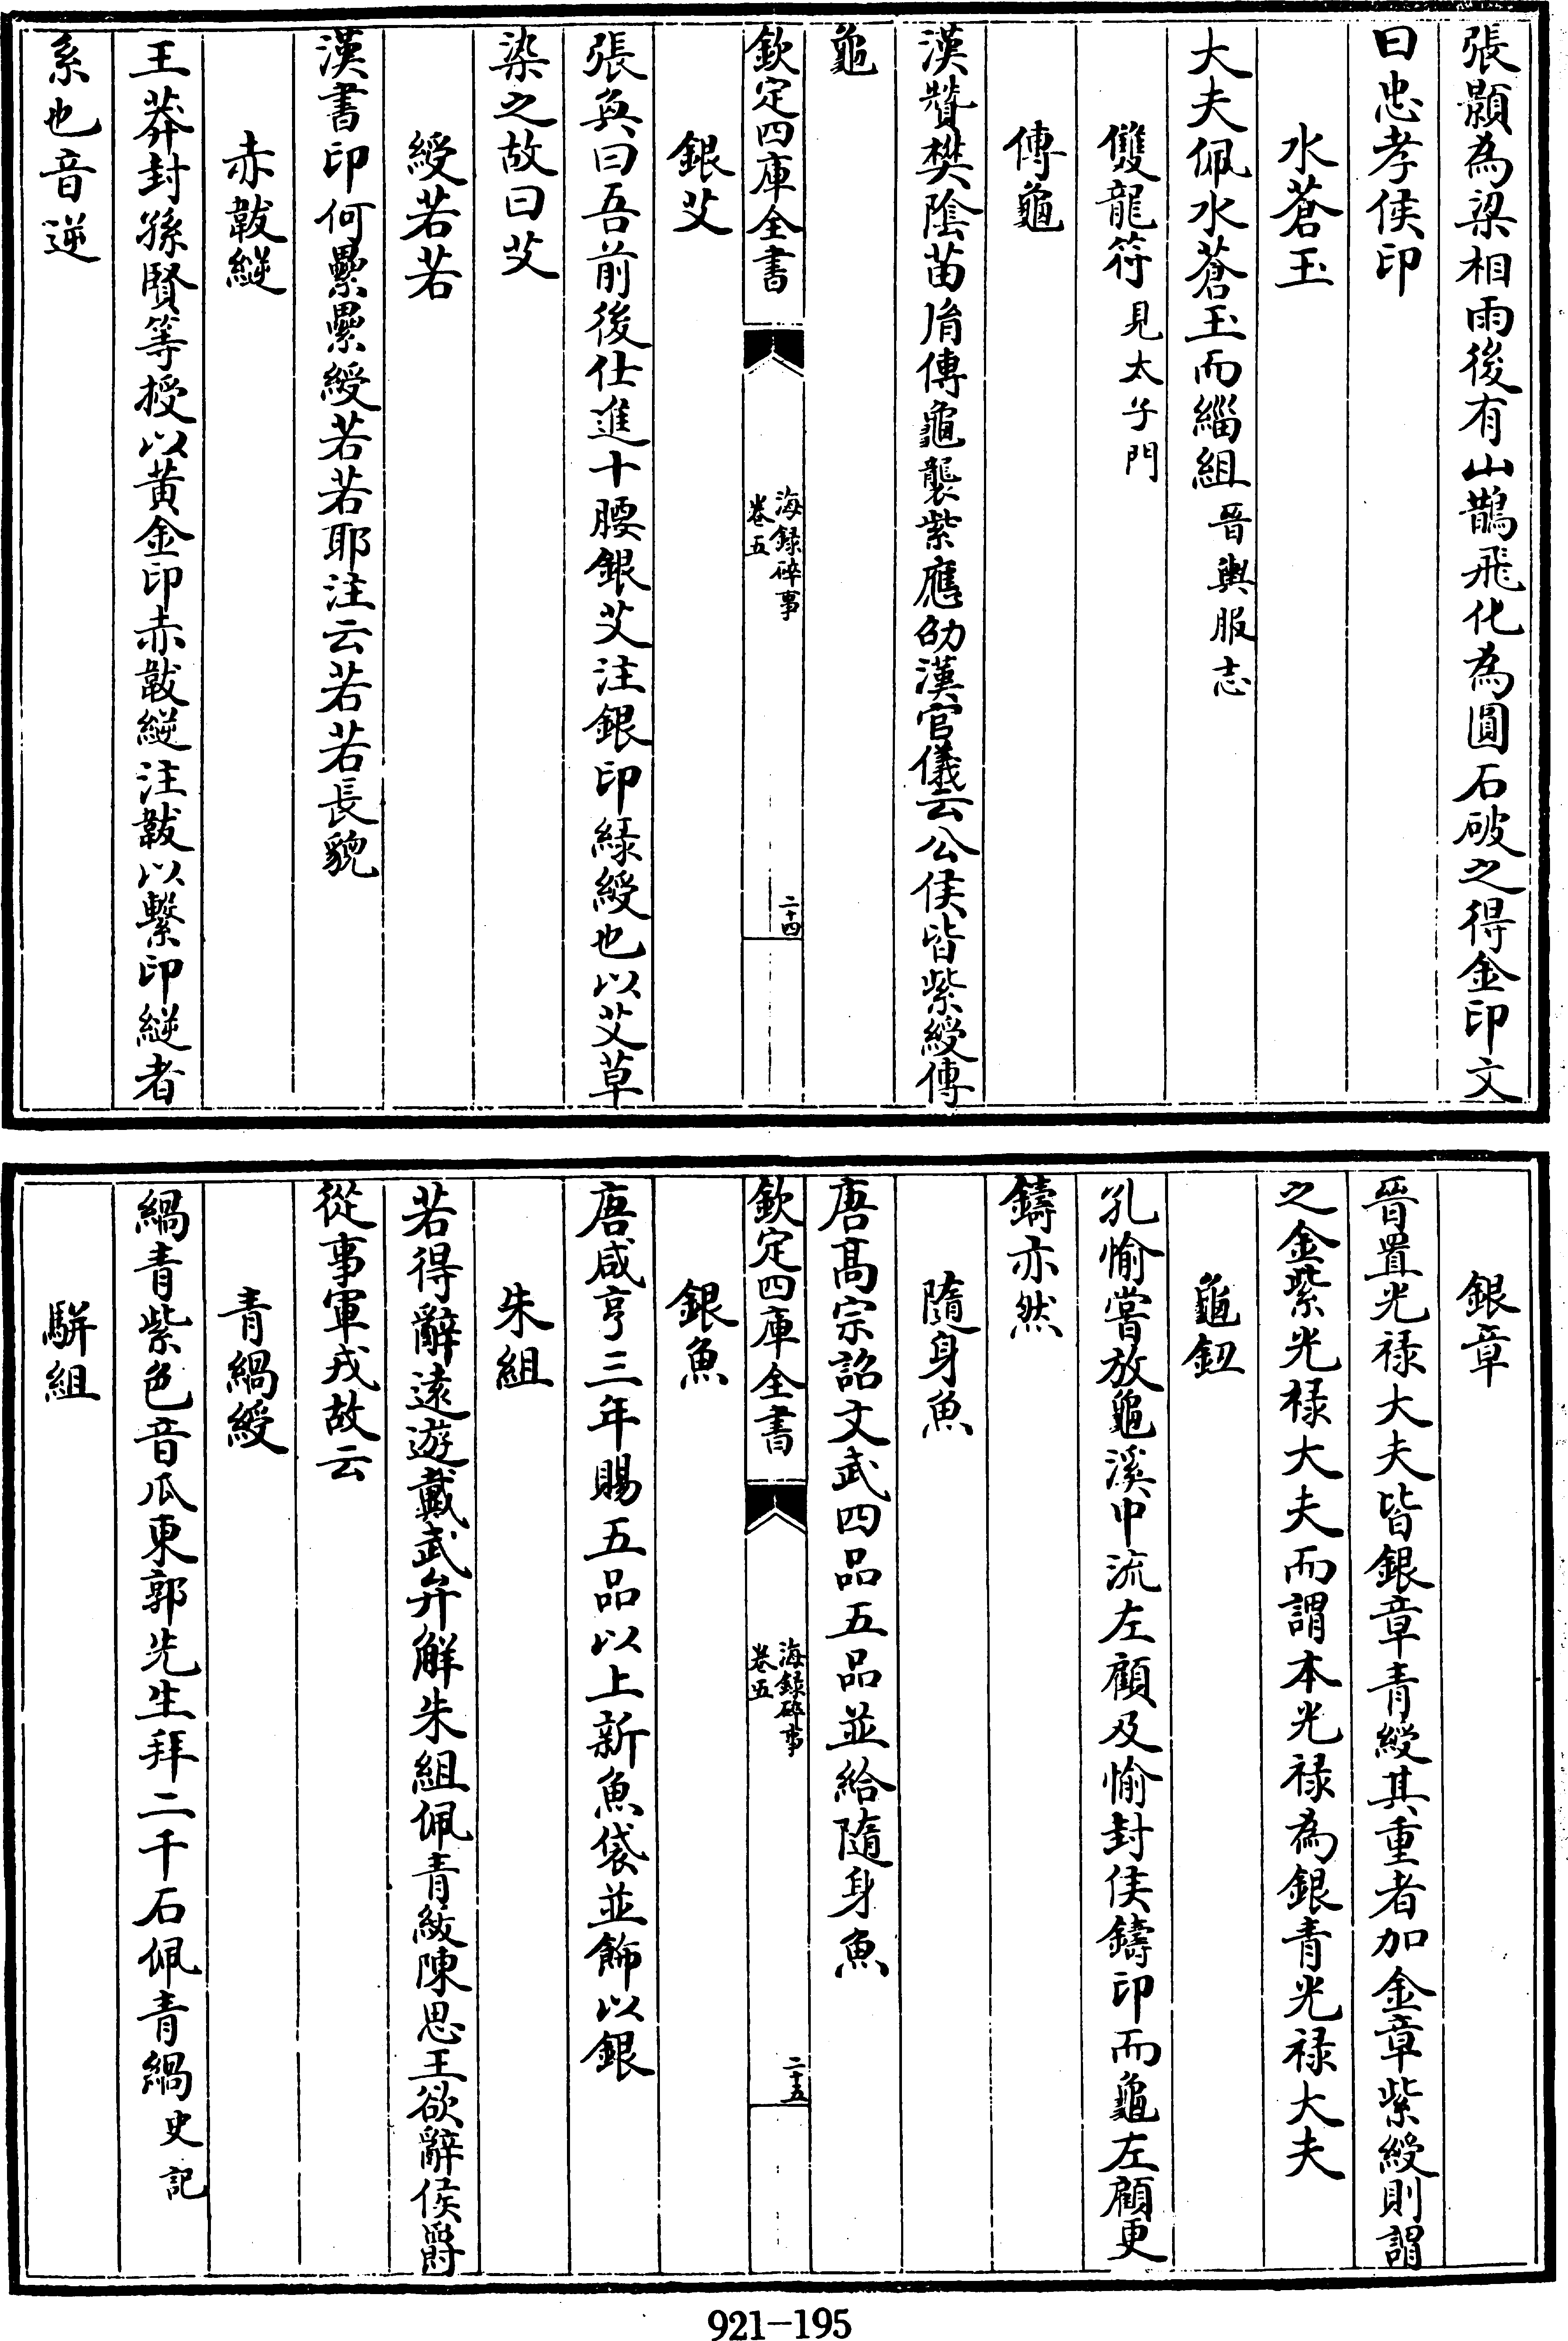 張顥為梁相雨後有山鵲飛化為圓石破之得金印文
曰忠孝侯印
水蒼玉
大夫佩水蒼玉而緇組晉輿服志
雙龍符見太子門
傳龜
漢贊樊陰苗胄傳龜襲紫應劭漢官儀云公侯皆紫綬傳
龜
欽定四庫全書
海錄碎事
卷五
二十四
銀艾
張奐曰吾前後仕進十腰銀艾注銀印綠綬也以艾草
染之故曰艾
綬若若
漢書印何纍纍綬若若耶注云若若長貌
赤韍縌
王莽封孫賢等授以黃金印赤韍縌注韍以繫印縌者
系也音逆
銀章
晉置光祿大夫皆銀章青綬其重者加金章紫綬則謂
之金紫光祿大夫而謂本光祿為銀青光祿大夫
龜鈕
孔愉嘗放龜溪中流左顧及愉封侯鑄印而龜左顧更
鑄亦然
隨身魚
唐髙宗詔文武四品五品並給隨身魚
欽定四庫全書
海錄碎事
卷五
二十五
銀魚
唐咸亨三年賜五品以上新魚袋並飾以銀
朱組
若得辭遠遊戴武弁解朱組佩青紱陳思王欲辭侯爵
從事軍戎故云
青緺綬
緺青紫色音瓜東郭先生拜二千石佩青緺史記
駢組
921-195